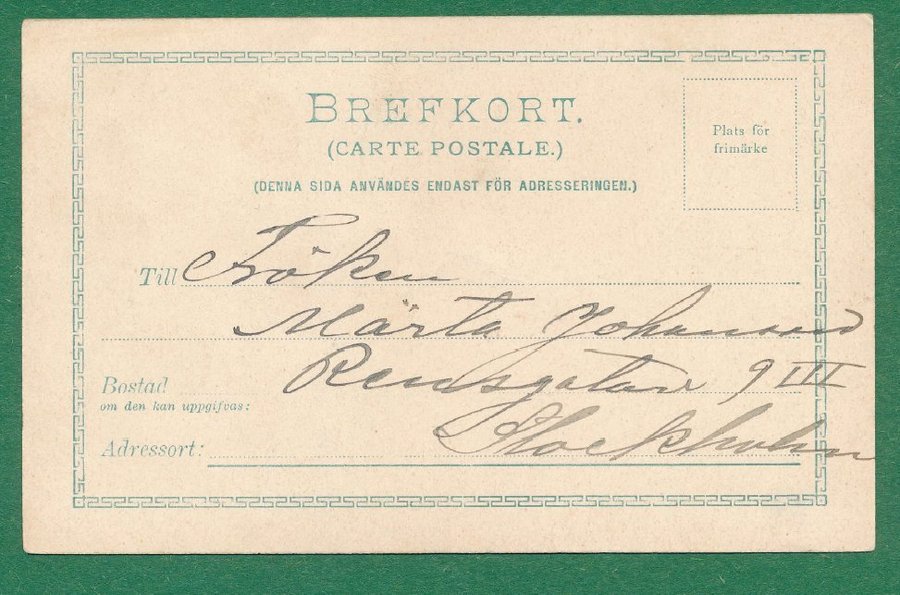 BREFKORT.
(CARTE POSTALE.)
(DENNA SIDA ANVÄNDES ENDAST FÖR ADRESSERINGEN.)
Plats för
frimärke
Till Fröken
Märta Johansson
Bostad
om den kan uppgifvas:
9 III
Adressort: Stockholm